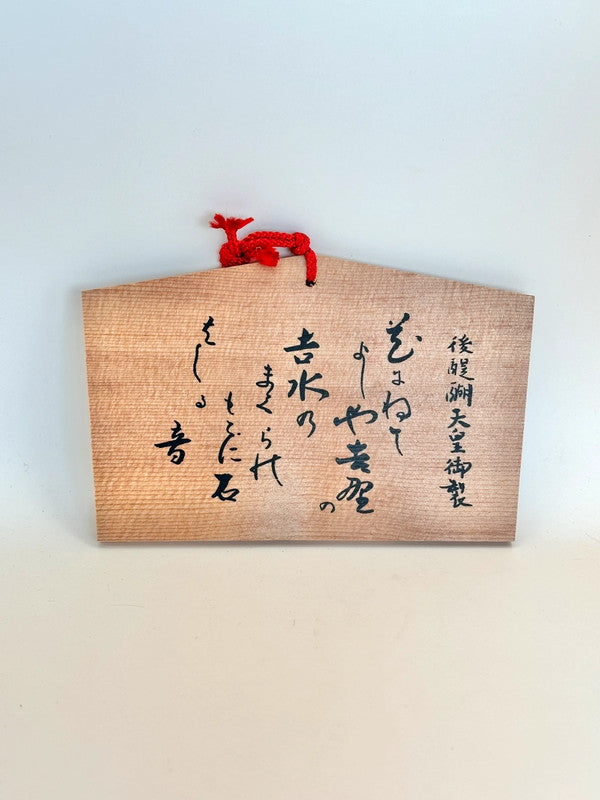 後醍醐天皇御製
花にねて
よしや吉野の
吉水の
まくらの
もとに石
はしる
音